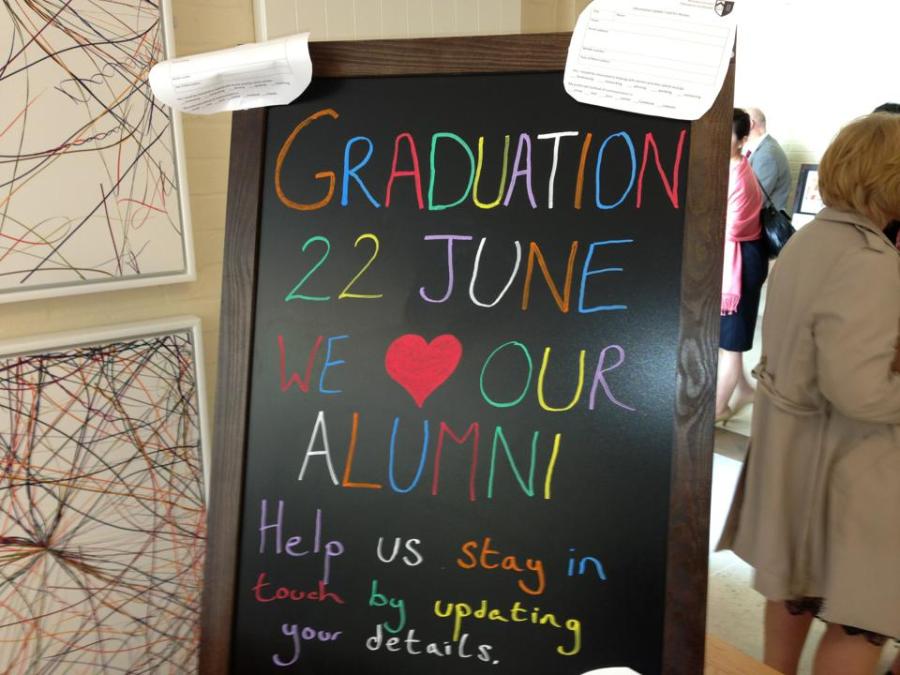 GRADUATION
22 JUNE
WE ❤ OUR
ALUMNI
Help us stay in
touch by updating
your details.